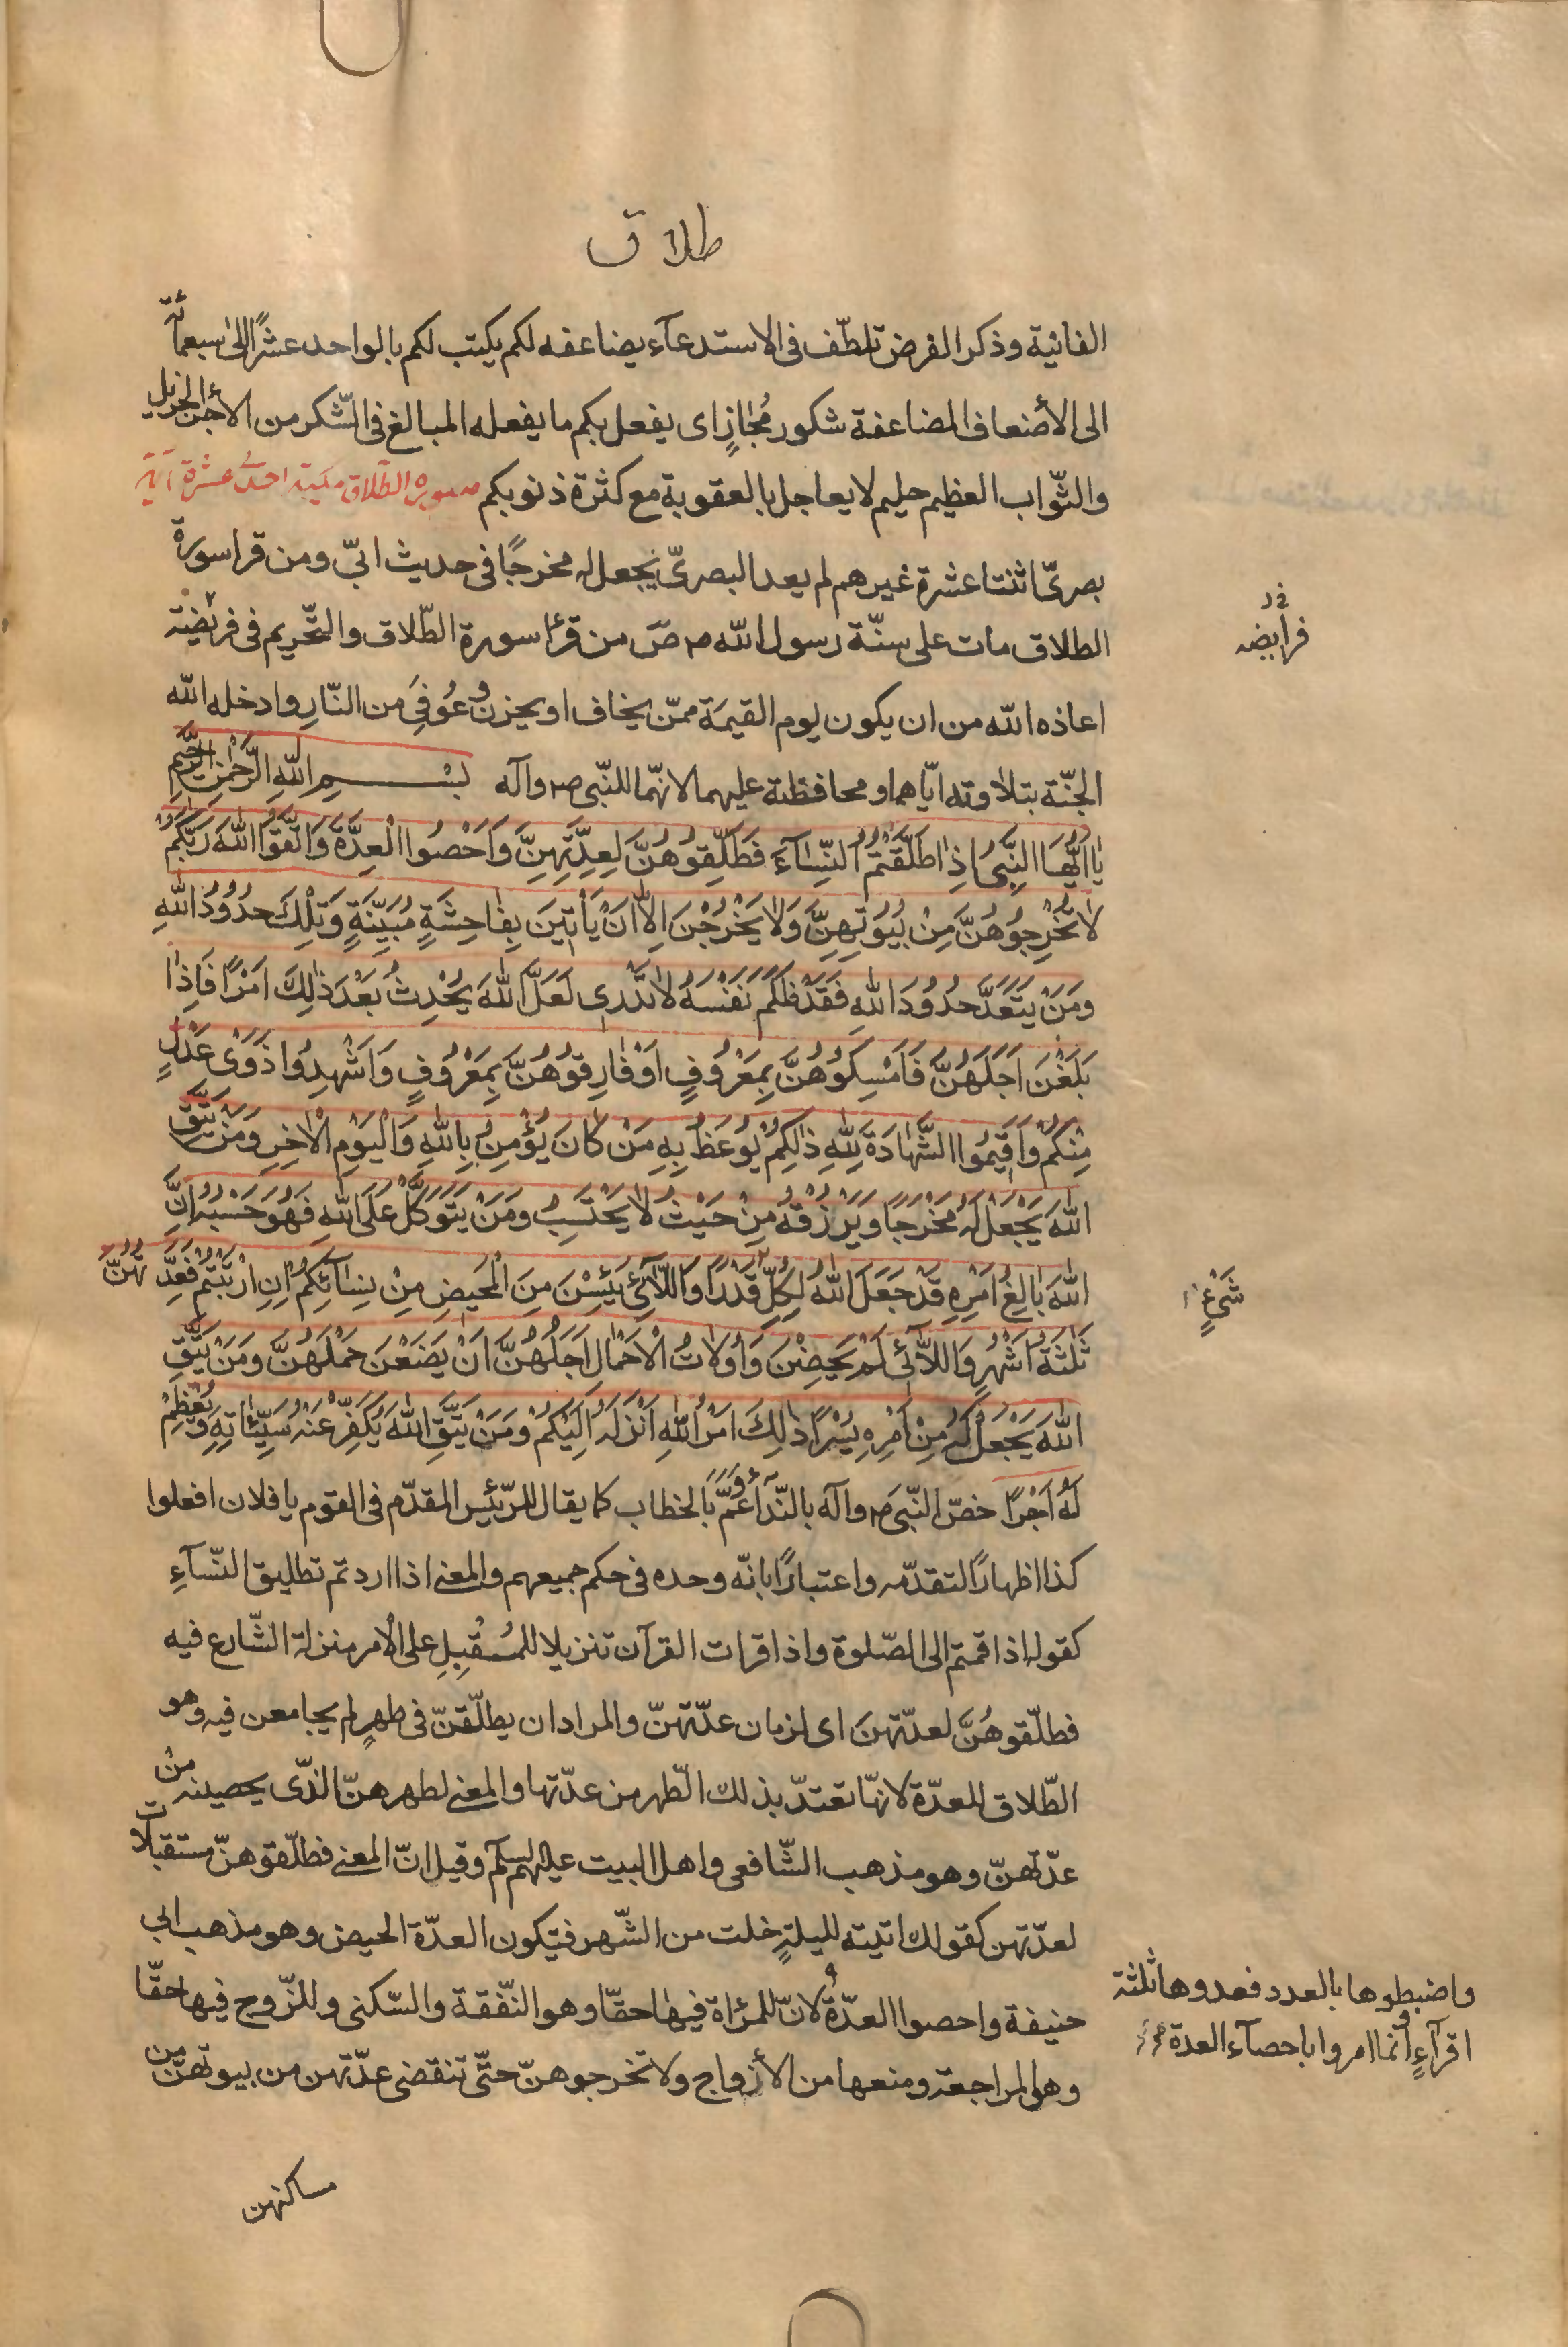 طلاق
الفانية وذكر القرض تلطّف فى الاستدعآء يضاعفه لكم يكتب لكم بالواحد عشرًا الى سبعمائة
الى الأضعاف المضاعفة شكور مُجٰازٍ اى يفعل بكم ما يفعله المبالغ فى الشّكر من الأجر الجزيل
والثّواب العظيم حليم لا يعاجل بالعقوبة مع كثرة ذنوبكم سورة الطّلاق مكيّة احدى عشرة آية
بصرىّ اثنتا عشرة غيرهم لم يعد البصرىّ يجعل له مخرجًا فى حديث ابىّ ومن قرا سورة
الطلاق مات على سنّة رسول الله ص من قرا سورة الطّلاق والتّحريم فى فريضة
فرايضه
اعاذه الله من ان يكون يوم القيمة ممّن يخاف او يحزن وعُوفِىَ من النّارِ وادخله الله
الجنّة بتلاوته ايّاهما ومحافظته عليهما لانهّما للنّبى ص وآله بِسْمِ اللّٰهِ الرَّحْمٰنِ الرَّحيمِ
يٰا اَيُّهَا النَّبِىُّ اِذٰا طَلَّقْتُمُ النِّسٰآءَ فَطَلِّقُوهُنَّ لِعِدَّتِهِنَّ وَاَحْصُوا الْعِدَّةَ وَاتَّقُوا اللّٰهَ رَبَّكُمْ
لاٰ تُخْرِجُوهُنَّ مِنْ بُيُوتِهِنَّ وَلاٰ يَخْرُجْنَ اِلاّٰ اَنْ يَأْتينَ بِفٰاحِشَةٍ مُبَيِّنَةٍ وَتِلْكَ حُدُودُ اللّٰهِ
وَمَنْ يَتَعَدَّ حُدُودَ اللّٰهِ فَقَدْ ظَلَمَ نَفْسَهُ لاٰ تَدْرى لَعَلَّ اللّٰهَ يُحْدِثُ بَعْدَ ذٰلِكَ اَمْرًا فَاِذٰا
بَلَغْنَ اَجَلَهُنَّ فَاَمْسِكُوهُنَّ بِمَعْرُوفٍ اَوْ فٰارِقُوهُنَّ بِمَعْرُوفٍ وَاَشْهِدُوا ذَوَىْ عَدْلٍ
مِنْكُمْ وَاَقيمُوا الشَّهٰادَةَ لِلّٰهِ ذٰلِكُمْ يُوعَظُ بِهِ مَنْ كٰانَ يُؤْمِنُ بِاللّٰهِ وَالْيَوْمِ الْاٰخِرِ وَمَنْ يَتَّقِ
اللّٰهَ يَجْعَلْ لَهُ مَخْرَجًا وَيَرْزُقْهُ مِنْ حَيْثُ لاٰ يَحْتَسِبُ وَمَنْ يَتَوَكَّلْ عَلَى اللّٰهِ فَهُوَ حَسْبُهُ اِنَّ
اللّٰهَ بٰالِغُ اَمْرِهِ قَدْ جَعَلَ اللّٰهُ لِكُلِّ قَدْرًا وَاللاّٰئى يَئِسْنَ مِنَ الْمَحيضِ مِنْ نِسٰائِكُمْ اِنِ ارْتَبْتُمْ فَعِدَّتُهُنَّ
شَىْءٍ
ثَلٰثَةُ اَشْهُرٍ وَاللاّٰئى لَمْ يَحِضْنَ وَاُولاٰتُ الْاَحْمٰالِ اَجَلُهُنَّ اَنْ يَضَعْنَ حَمْلَهُنَّ وَمَنْ يَتَّقِ
اللّٰهَ يَجْعَلْ لَهُ مِنْ اَمْرِهِ يُسْرًا ذٰلِكَ اَمْرُ اللّٰهِ اَنْزَلَهُ اِلَيْكُمْ وَمَنْ يَتَّقِ اللّٰهَ يُكَفِّرْ عَنْهُ سَيِّئٰاتِهِ وَيُعْظِمْ
لَهُ اَجْرًا خصّ النّبى ص وآله بالنّدآء وعَمَّ بالخطاب كما يقال للرّئيس المقدّم فى القوم يا فلان افعلوا
كذا اظهارًا لتقدّمه واعتبارًا بانّه وحده فى حكم جميعهم والمعنى اذا اردتم تطليق النّسآءِ
كقوله اذا قمتم الى الصّلوة واذا قرات القرآن تنزيلا للمُقْبِلِ على الأمر منزلة الشّارع فيه
فطلّقوهُنَّ لعدّتهنَ اى لزمان عدّتهنّ والمراد ان يطلّقنّ فى طهرٍ لم يجامعن فيه وهو
الطّلاق للعدّة لانهّا تعتدّ بذلك الطّهر من عدّتها والمعنى لطهرهنّ الذّى يحصينه من
عدّتهنّ وهو مذهب الشّافعى واهل البيت عليهم السلم وقيل انّ المعنى فطلّقوهنّ مستقبلات
لعدّتهن كقولك اتيته لليلةٍ خلت من الشّهر فتكون العدّة الحيض وهو مذهب ابى
حنيفة واحصوا العدّة لانّ للمرأة فيهٰا حقّا وهو النّفقة والسّكنى وللزّوج فيها حقّا
واضبطوها بالعدد فعدوها ثلثة
اقرآءٍ وانما امروا باحصآء العدة
وهى المراجعة ومنعها من الأزواج ولا تخرجوهنّ حتّى تنقضى عدّتهن من بيوتهنّ من
مساكنهن